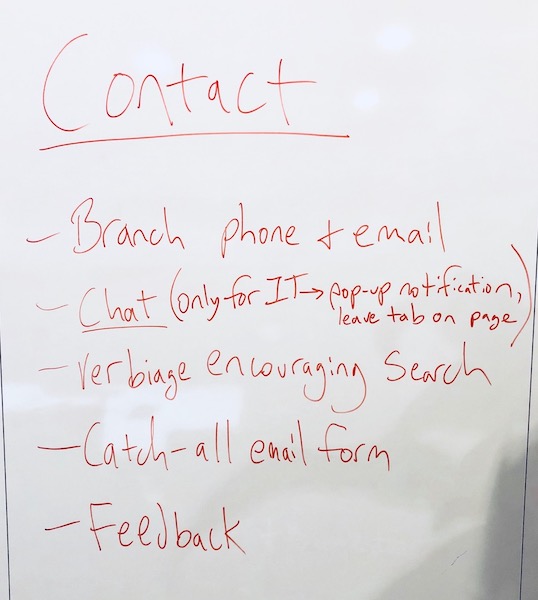 Contact
- Branch phone + email
- Chat (only for IT → pop-up notification,
leave tab on page)
- Verbiage encouraging search
- Catch-all email form
- Feedback